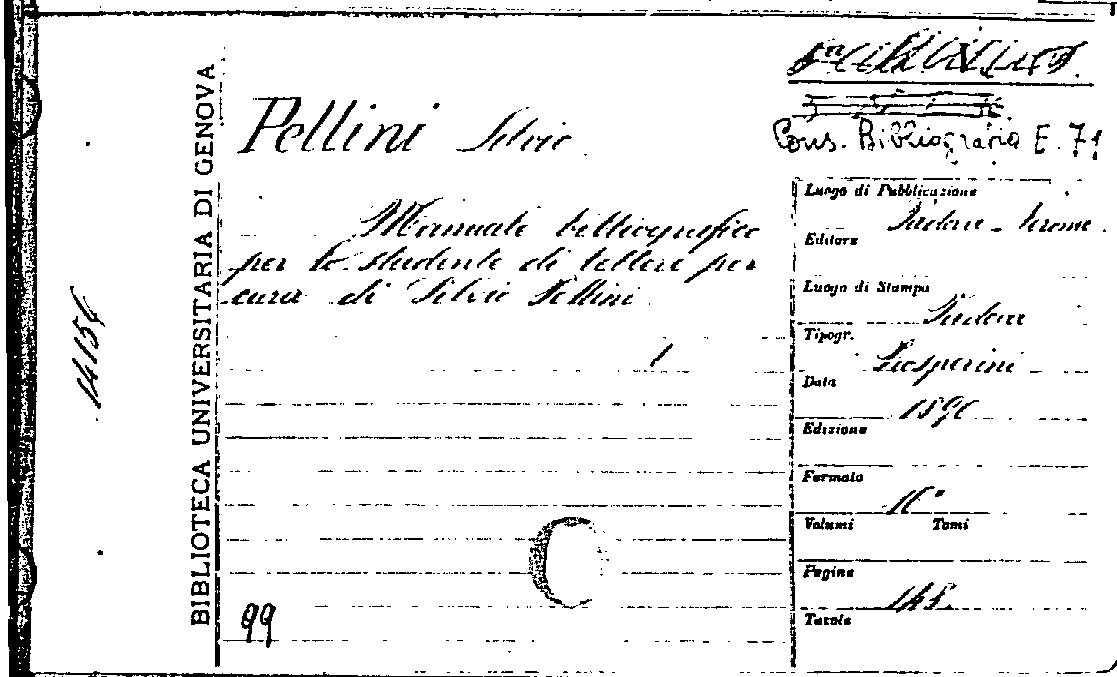 BIBLIOTECA UNIVERSITARIA DI GENOVA
Pellini Silvio
Manuale bibliografico
per lo studente di lettere per
cura di Silvio Pellini
Cons. Bibliografia E. 71
Luogo di Pubblicazione
Padova - Verona
Editore
Luogo di Stampa
Padova
Tipogr.
Prosperini
Data
Edizione
Formato
16°
Volumi Tomi
Pagine
Tavole
99